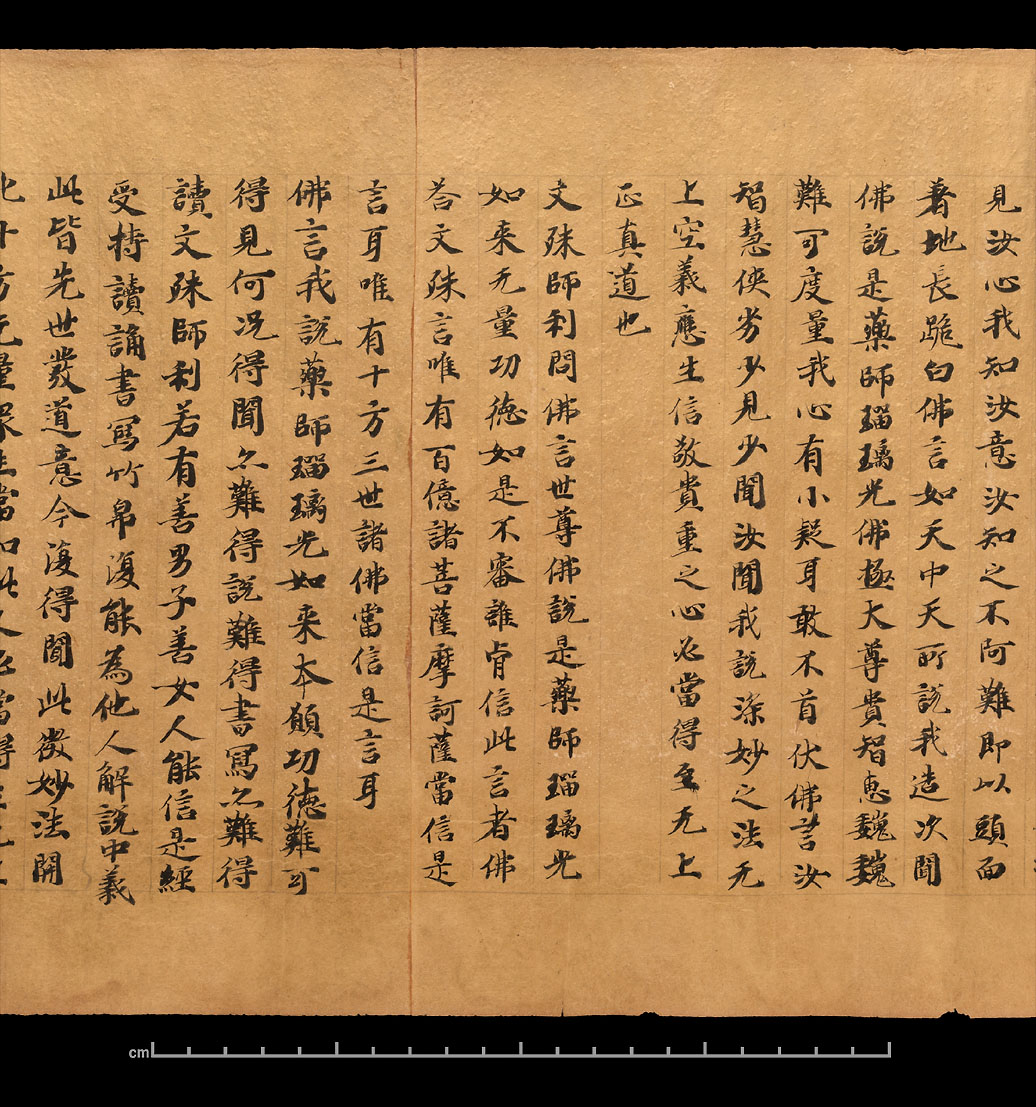 見汝心我知汝意汝知之不阿難即以頭面
著地長跪白佛言如天中天所說我造次聞
佛說是藥師瑠璃光佛極大尊貴智惠巍巍
難可度量我心有小疑耳敢不首伏佛言汝
智慧俠劣少見少聞汝聞我說深妙之法无
上空義應生信敬貴重之心必當得至无上
正真道也
文殊師利問佛言世尊佛說是藥師瑠璃光
如来无量功德如是不審誰肯信此言者佛
荅文殊言唯有百億諸菩薩摩訶薩當信是
言耳唯有十方三世諸佛當信是言耳
佛言我說藥師瑠璃光如来本願功德難可
得見何況得聞亦難得說難得書寫亦難得
讀文殊師利若有善男子善女人能信是經
受持讀誦書寫竹帛復能為他人解說中義
此皆先世發道意今復得聞此微妙法開
化十方无量眾生當知此人必當得至无上